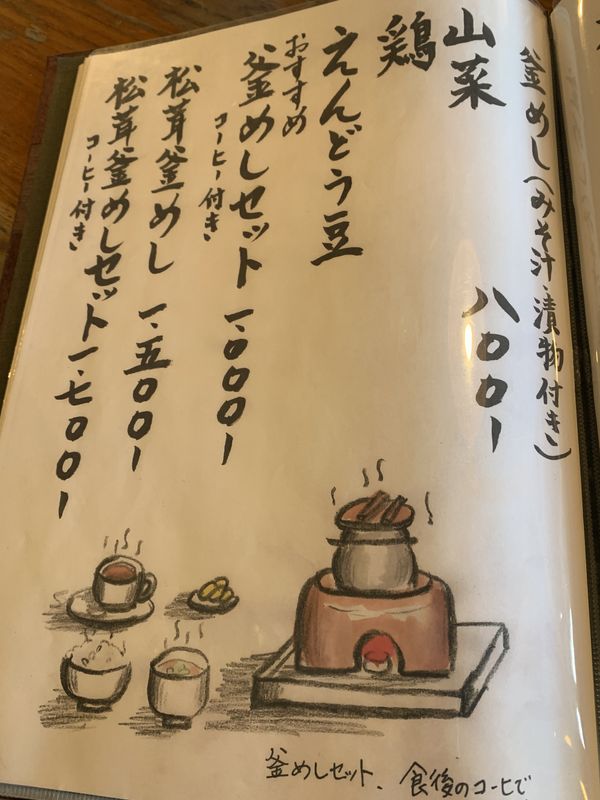 釜めし（みそ汁・漬物付き）
山菜 八〇〇ー
鶏
えんどう豆
おすすめ
釜めしセット 一、〇〇〇ー
コーヒー付き
松茸釜めし 一、五〇〇ー
松茸釜めしセット 一、七〇〇ー
コーヒー付き
釜めしセット、食後のコーヒで